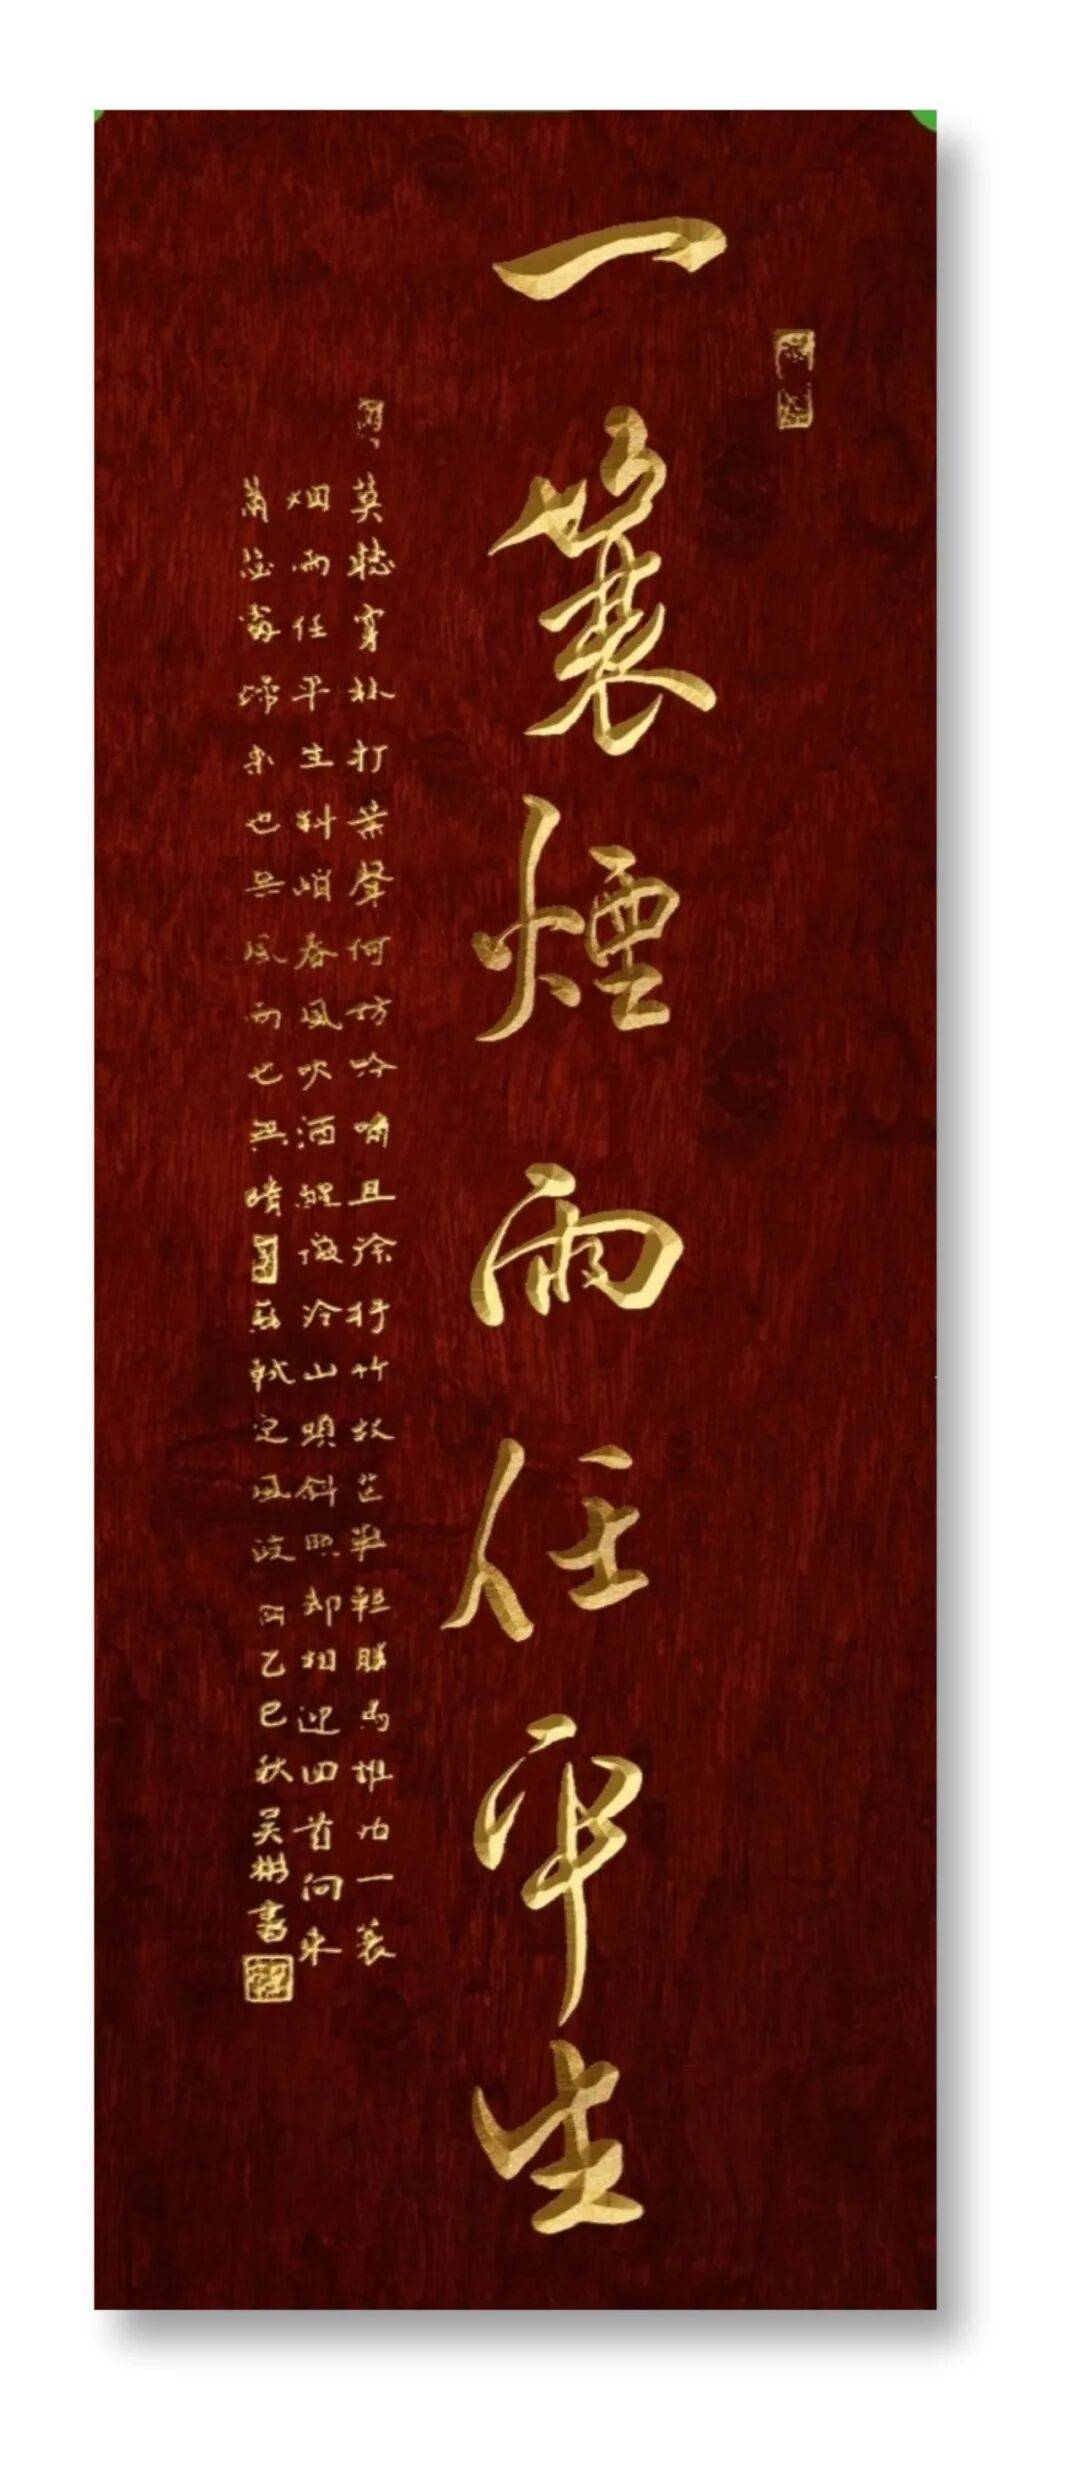 一蓑煙雨任平生
莫聽穿林打葉聲何妨吟嘯且徐行竹杖芒鞋輕勝馬誰怕一蓑
烟雨任平生料峭春風吹酒醒微冷山頭斜照却相迎回首向来
蕭瑟處歸来也無風雨也無晴蘇軾定風波乙巳秋吴彬書